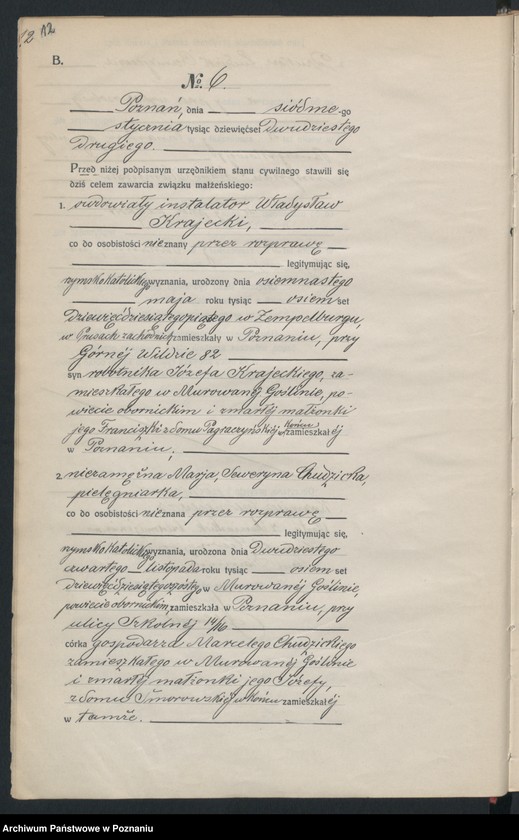 12
B.
No. 6.
Poznań, dnia siódme-go
stycznia tysiąc dziewięćset Dwudziestego
drugiego.
Przed niżej podpisanym urzędnikiem stanu cywilnego stawili się
dziś celem zawarcia związku małżeńskiego:
1. owdowiały instalator Władysław
Krajecki,
co do osobistości nieznany przez rozprawę
legitymując się,
rzymsko katolickiego wyznania, urodzony dnia osiemnastego
maja roku tysiąc osiemset
dziewięćdziesiątegopiątego w Zempelburgu,
w Prusach zachodnich zamieszkały w Poznaniu, przy
Górnéj Wildzie 82
syn robotnika Józefa Krajeckiego, za-
mieszkałego w Murowanéj Goślinie, po-
wiecie obornickim i zmarłéj małżonki
jego Franciszki z domu w końcu zamieszkałéj
w Poznaniu,
2. niezamężna Marja, Seweryna Chudzicka,
pielęgniarka,
co do osobistości nieznana przez rozprawę
legitymując się,
rzymsko katolickiego wyznania, urodzona dnia Dwudziestego
czwartego listopada roku tysiąc osiemset
dziewięćdziesiątegoszóstego w Murowanéj Goślinie,
powiecie obornickim, zamieszkała w Poznaniu, przy
ulicy Szkolnéj 14/16
córka gospodarza Marcelego Chudzickiego
zamieszkałego w Murowanéj Goślinie
i zmarłéj małżonki jego Józefy,
z domu Smorowskiéj w końcu zamieszkałéj
w tamże.
Archiwum Państwowe w Poznaniu